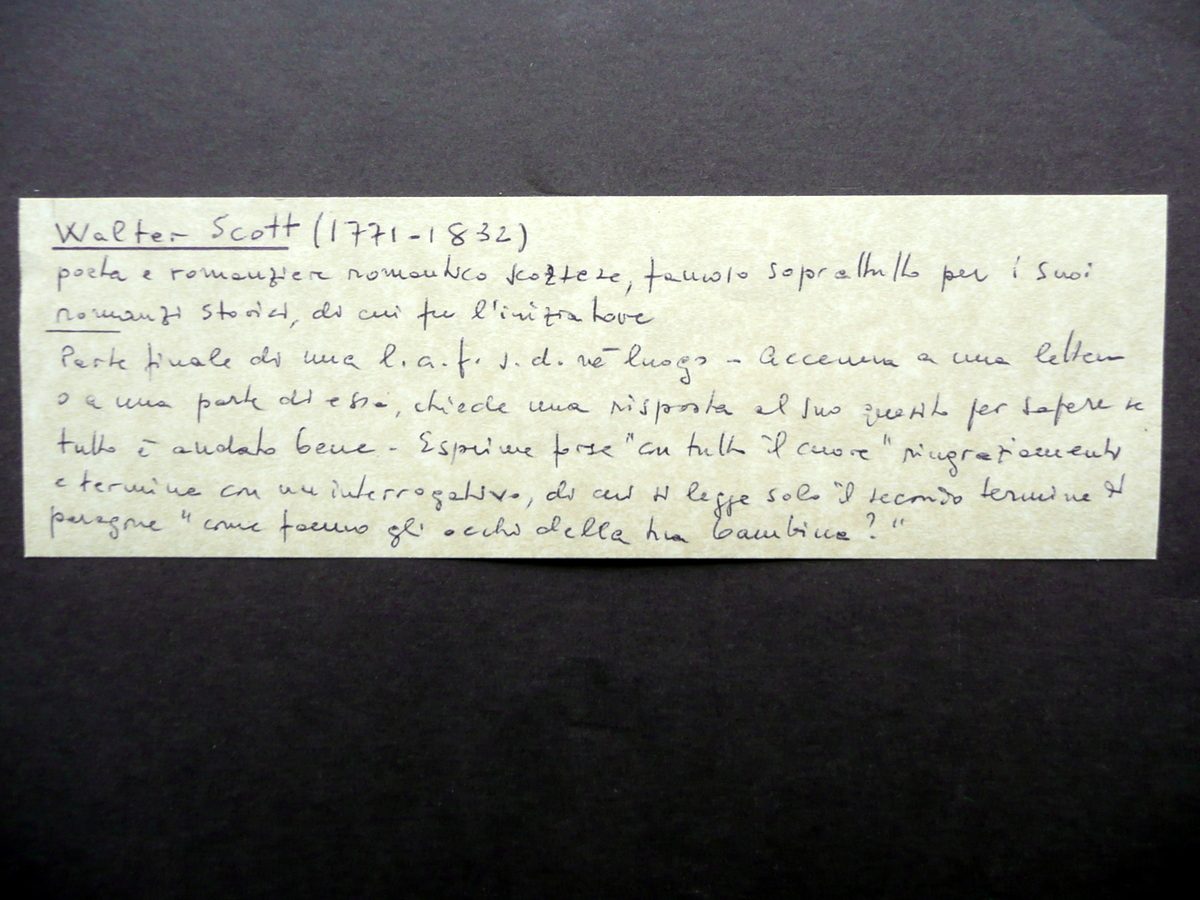 Walter Scott (1771-1832)
poeta e romanziere romantico scozzese, famoso soprattutto per i suoi
romanzi storici, di cui fu l'iniziatore
Parte finale di una l. a. f. s. d. né luogo - Accenna a una lettera
o a una parte di essa, chiede una risposta al suo quesito per sapere se
tutto è andato bene - Esprime forse "con tutto il cuore" ringraziamenti
e termina con un interrogativo, di cui si legge solo il secondo termine di
paragone "come fanno gli occhi della tua bambina?"